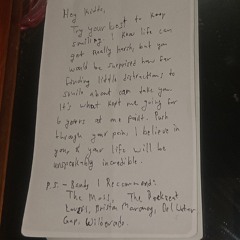 Hey Kiddo,
Try your best to keep
smiling! Real life can
get really hard, but you
would be surprised how far
finding little distractions to
smile about can take you
It's what kept me going for
6 years at me past. Push
through your pain, I believe in
you, & your life will be
unspeakably incredible.
P.S. - Bands I Recommend:
The Marís, The Backseat
Lovers, Arista Maroney, Del Water
Gap, Wilderado.